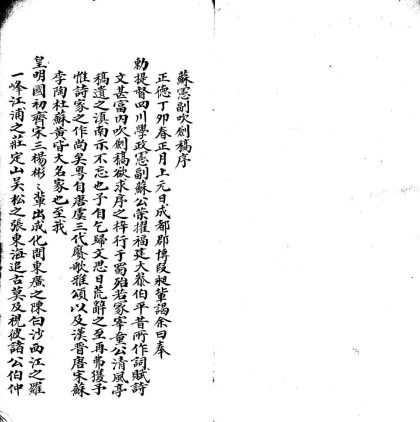 蘇憲副吹劍稿序
正德丁卯春正月上元日成都郡博段昶輩謁余曰奉
勅提督四川學政憲副蘇公榮擢福廷大叅伯平昔所作詞賦詩
文甚富內吹劍稿欲求序之梓行于蜀殆若冢宰童公清風亭
稿遺之滇南示不忘也予自乞歸文思日荒辭之至再弗獲予
惟詩家之作尚矣粵自唐虞三代賡歌雅頌以及漢晉唐宋蘇
李陶杜蘇黃皆大名家也至我
皇明國初齊宋三楊彬〻輩出成化間東廣之陳白沙西江之羅
一峰江浦之莊定山吳松之張東海追古莫及視彼諸公伯仲